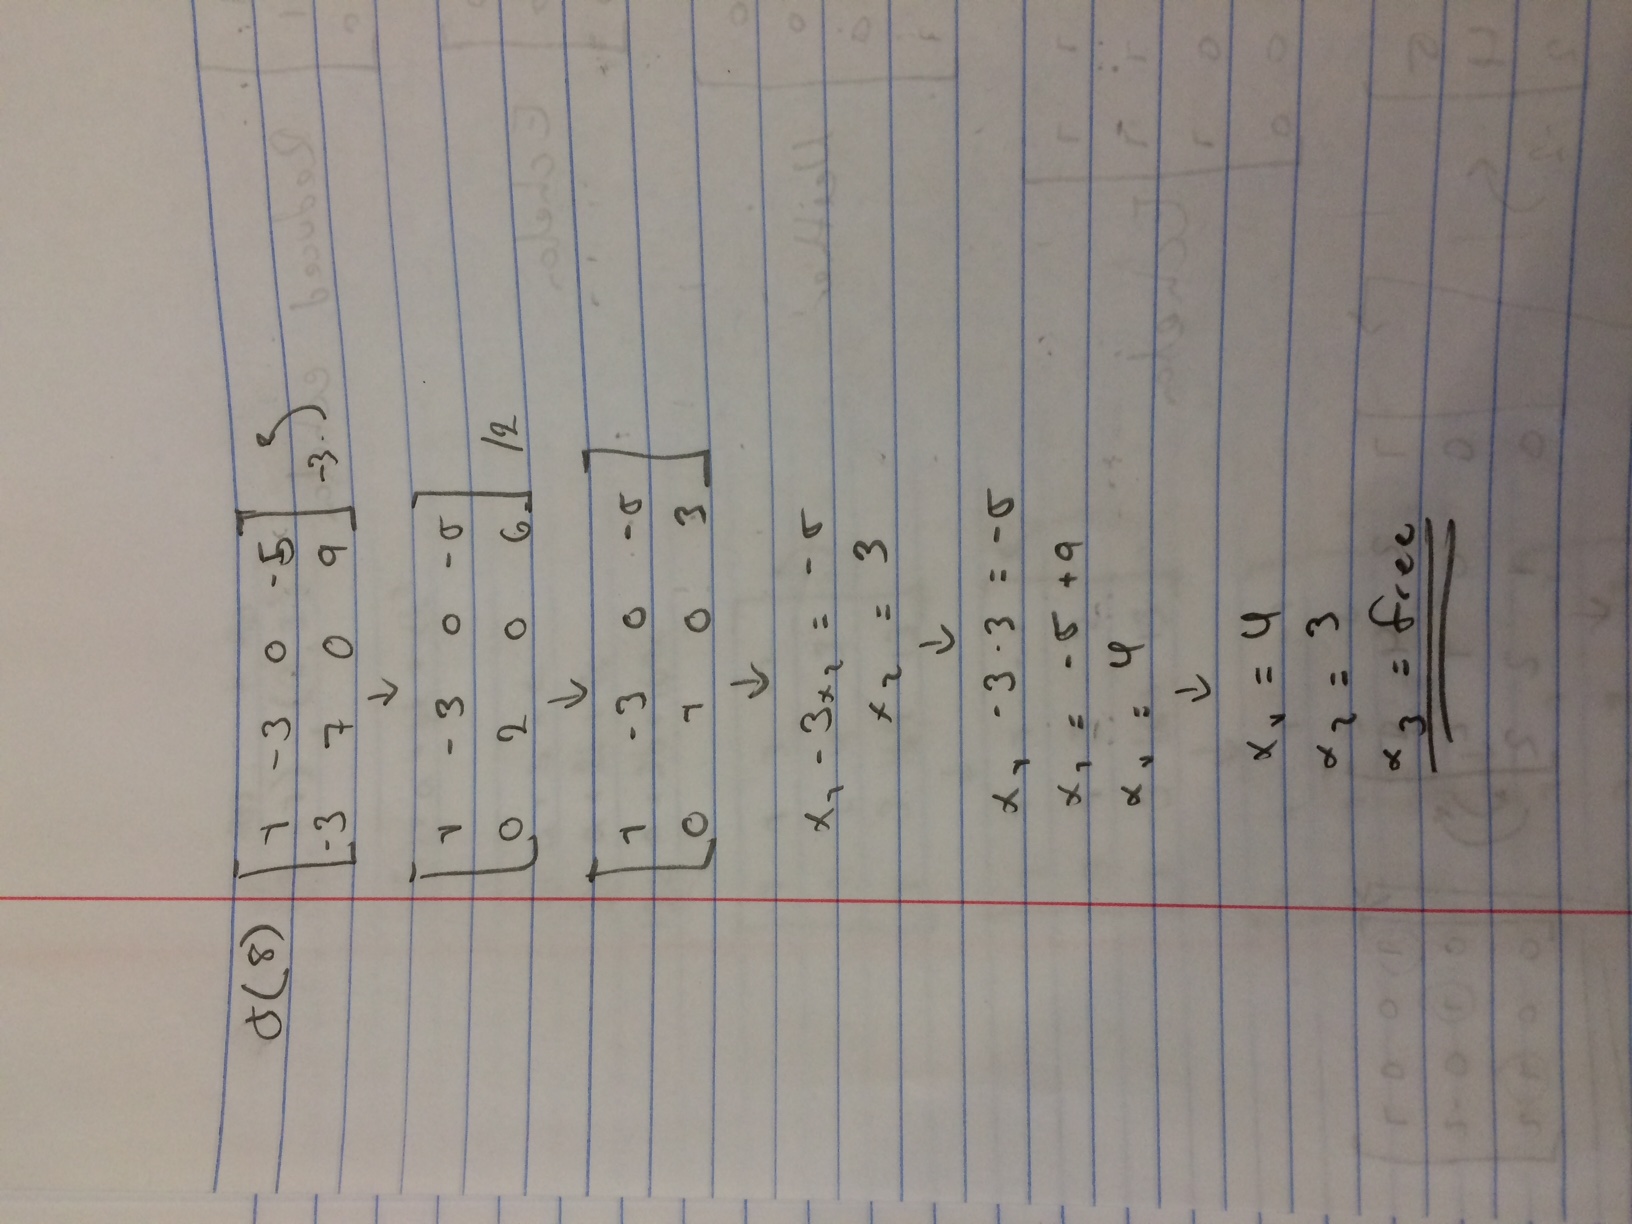 5(8) [ 1 -3 0 -5 ]
[ -3 7 0 9 ] -3.
↓
[ 1 -3 0 -5 ]
[ 0 2 0 6 ] /2
↓
[ 1 -3 0 -5 ]
[ 0 1 0 3 ]
↓
x₁ - 3x₂ = -5
x₂ = 3
↓
x₁ -3·3 = -5
x₁ = -5 +9
x₁ = 4
↓
x₁ = 4
x₂ = 3
x₃ = free